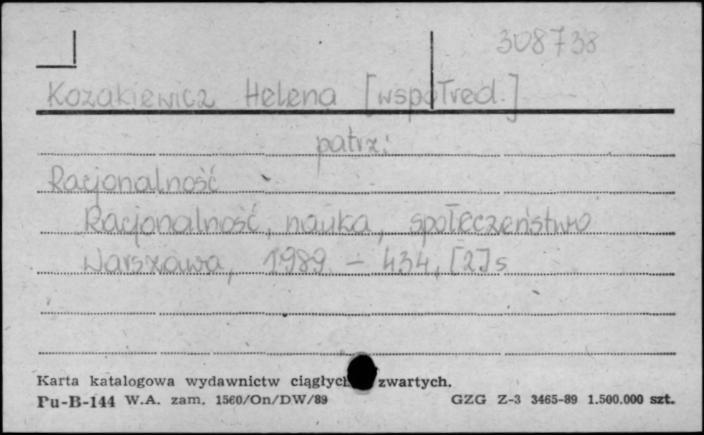 308738
Kozakiewicz Helena [współred.]
patrz:
Racjonalność
Racjonalność, nauka, społeczeństwo
Warszawa, 1989. - 434, [2] s
Karta katalogowa wydawnictw ciągłych zwartych.
Pu-B-144 W.A. zam. 1560/On/DW/89 GZG Z-3 3465-89 1.500.000 szt.